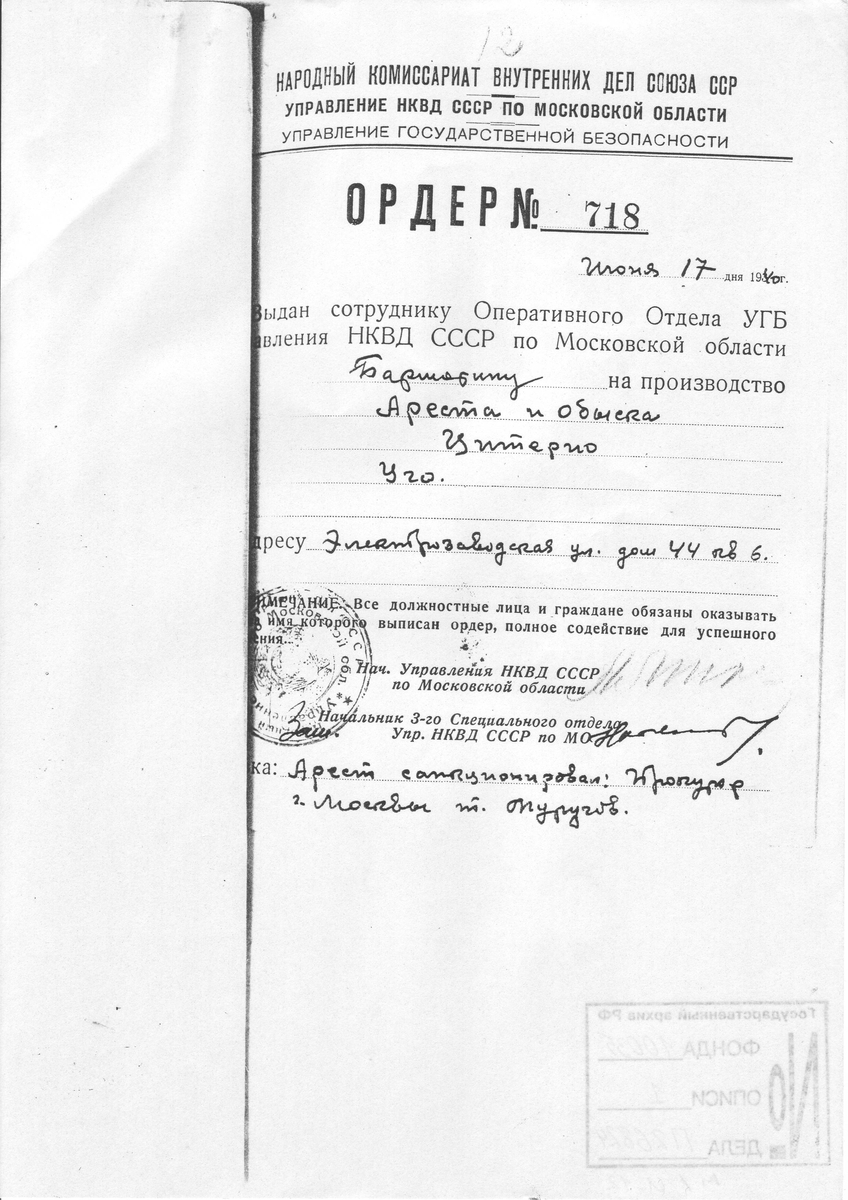 НАРОДНЫЙ КОМИССАРИАТ ВНУТРЕННИХ ДЕЛ СОЮЗА ССР
УПРАВЛЕНИЕ НКВД СССР ПО МОСКОВСКОЙ ОБЛАСТИ
УПРАВЛЕНИЕ ГОСУДАРСТВЕННОЙ БЕЗОПАСНОСТИ
ОРДЕР № 718
Июня 17 дня 1940г.
Выдан сотруднику Оперативного Отдела УГБ
авления НКВД СССР по Московской области
на производство
Ареста и Обыска
Цитерно
Уго.
дресу Электрозаводская ул. дом 44 кв 6.
ИМЕЧАНИЕ. Все должностные лица и граждане обязаны оказывать
имя которого выписан ордер, полное содействие для успешного
ения.
Нач. Управления НКВД СССР
по Московской области
Начальник 3-го Специального отдела
Зам. Упр. НКВД СССР по МО
ка: Арест санкционировал: Прокурор
г. Москвы т.
Государственный архив РФ
ФОНДА
ОПИСИ
ДЕЛА
№